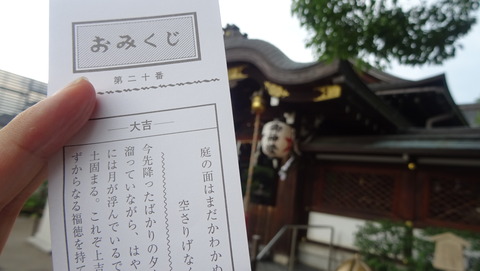 おみくじ
第二十番
大吉
庭の面はまだかわかぬ
空さりげなく
今先降ったばかりの夕
溜っていながら、はや
には月が浮んでいるで
土固まる。これぞ上吉
ずからなる福徳を持て